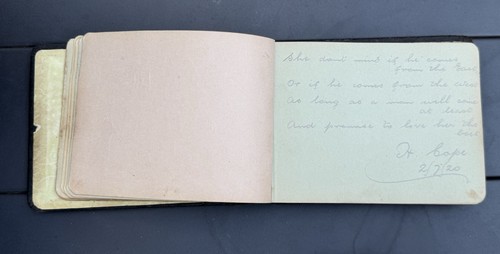 She don't mind if he comes
from the East
Or if he comes from the West
As long as a man will come
at least
And promise to love her the
best
H. Cope
2/7/20